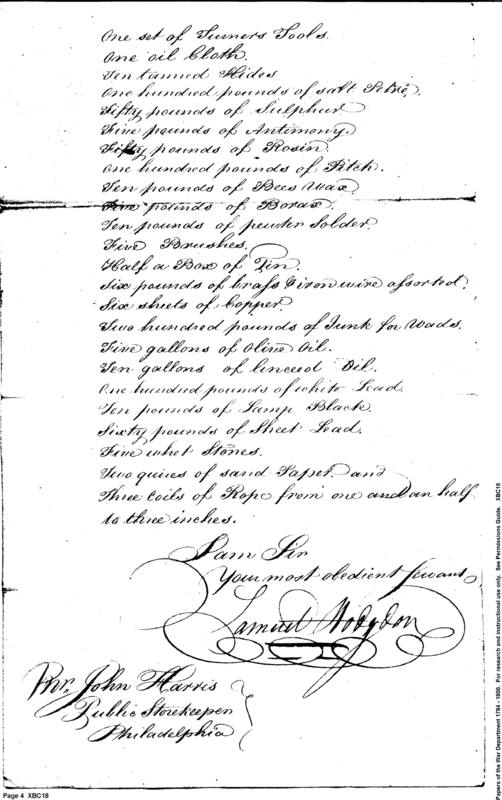 One set of Turners Tools.
One oil Cloth.
Ten tanned Hides
One hundred pounds of salt Petre.
Fifty pounds of Sulphur
Five pounds of Antimony.
Fifty pounds of Rosin.
One hundred pounds of Pitch.
Ten pounds of Bees Wax
Five pounds of Borax.
Ten pounds of pewter Solder.
Five Brushes.
Half a Box of Tin.
Six pounds of brass & iron wire assorted.
Six sheets of Copper.
Two hundred pounds of Junk for Wads.
Five gallons of Olive Oil.
Ten gallons of linceed Oil.
One hundred pounds of white Lead.
Ten pounds of Lamp Black.
Sixty pounds of Sheet Lead.
Five whet Stones.
Two quires of sand Paper and
Three Coils of Rope from one and an half
to three inches.
I am Sir
Your most obedient servant
Samuel Hodgdon
Mr. John Harris
Public Storekeeper
Philadelphia
Page 4 XBC18
Papers of the War Department 1784 - 1800. For research and instructional use only. See Permissions Guide. XBC18